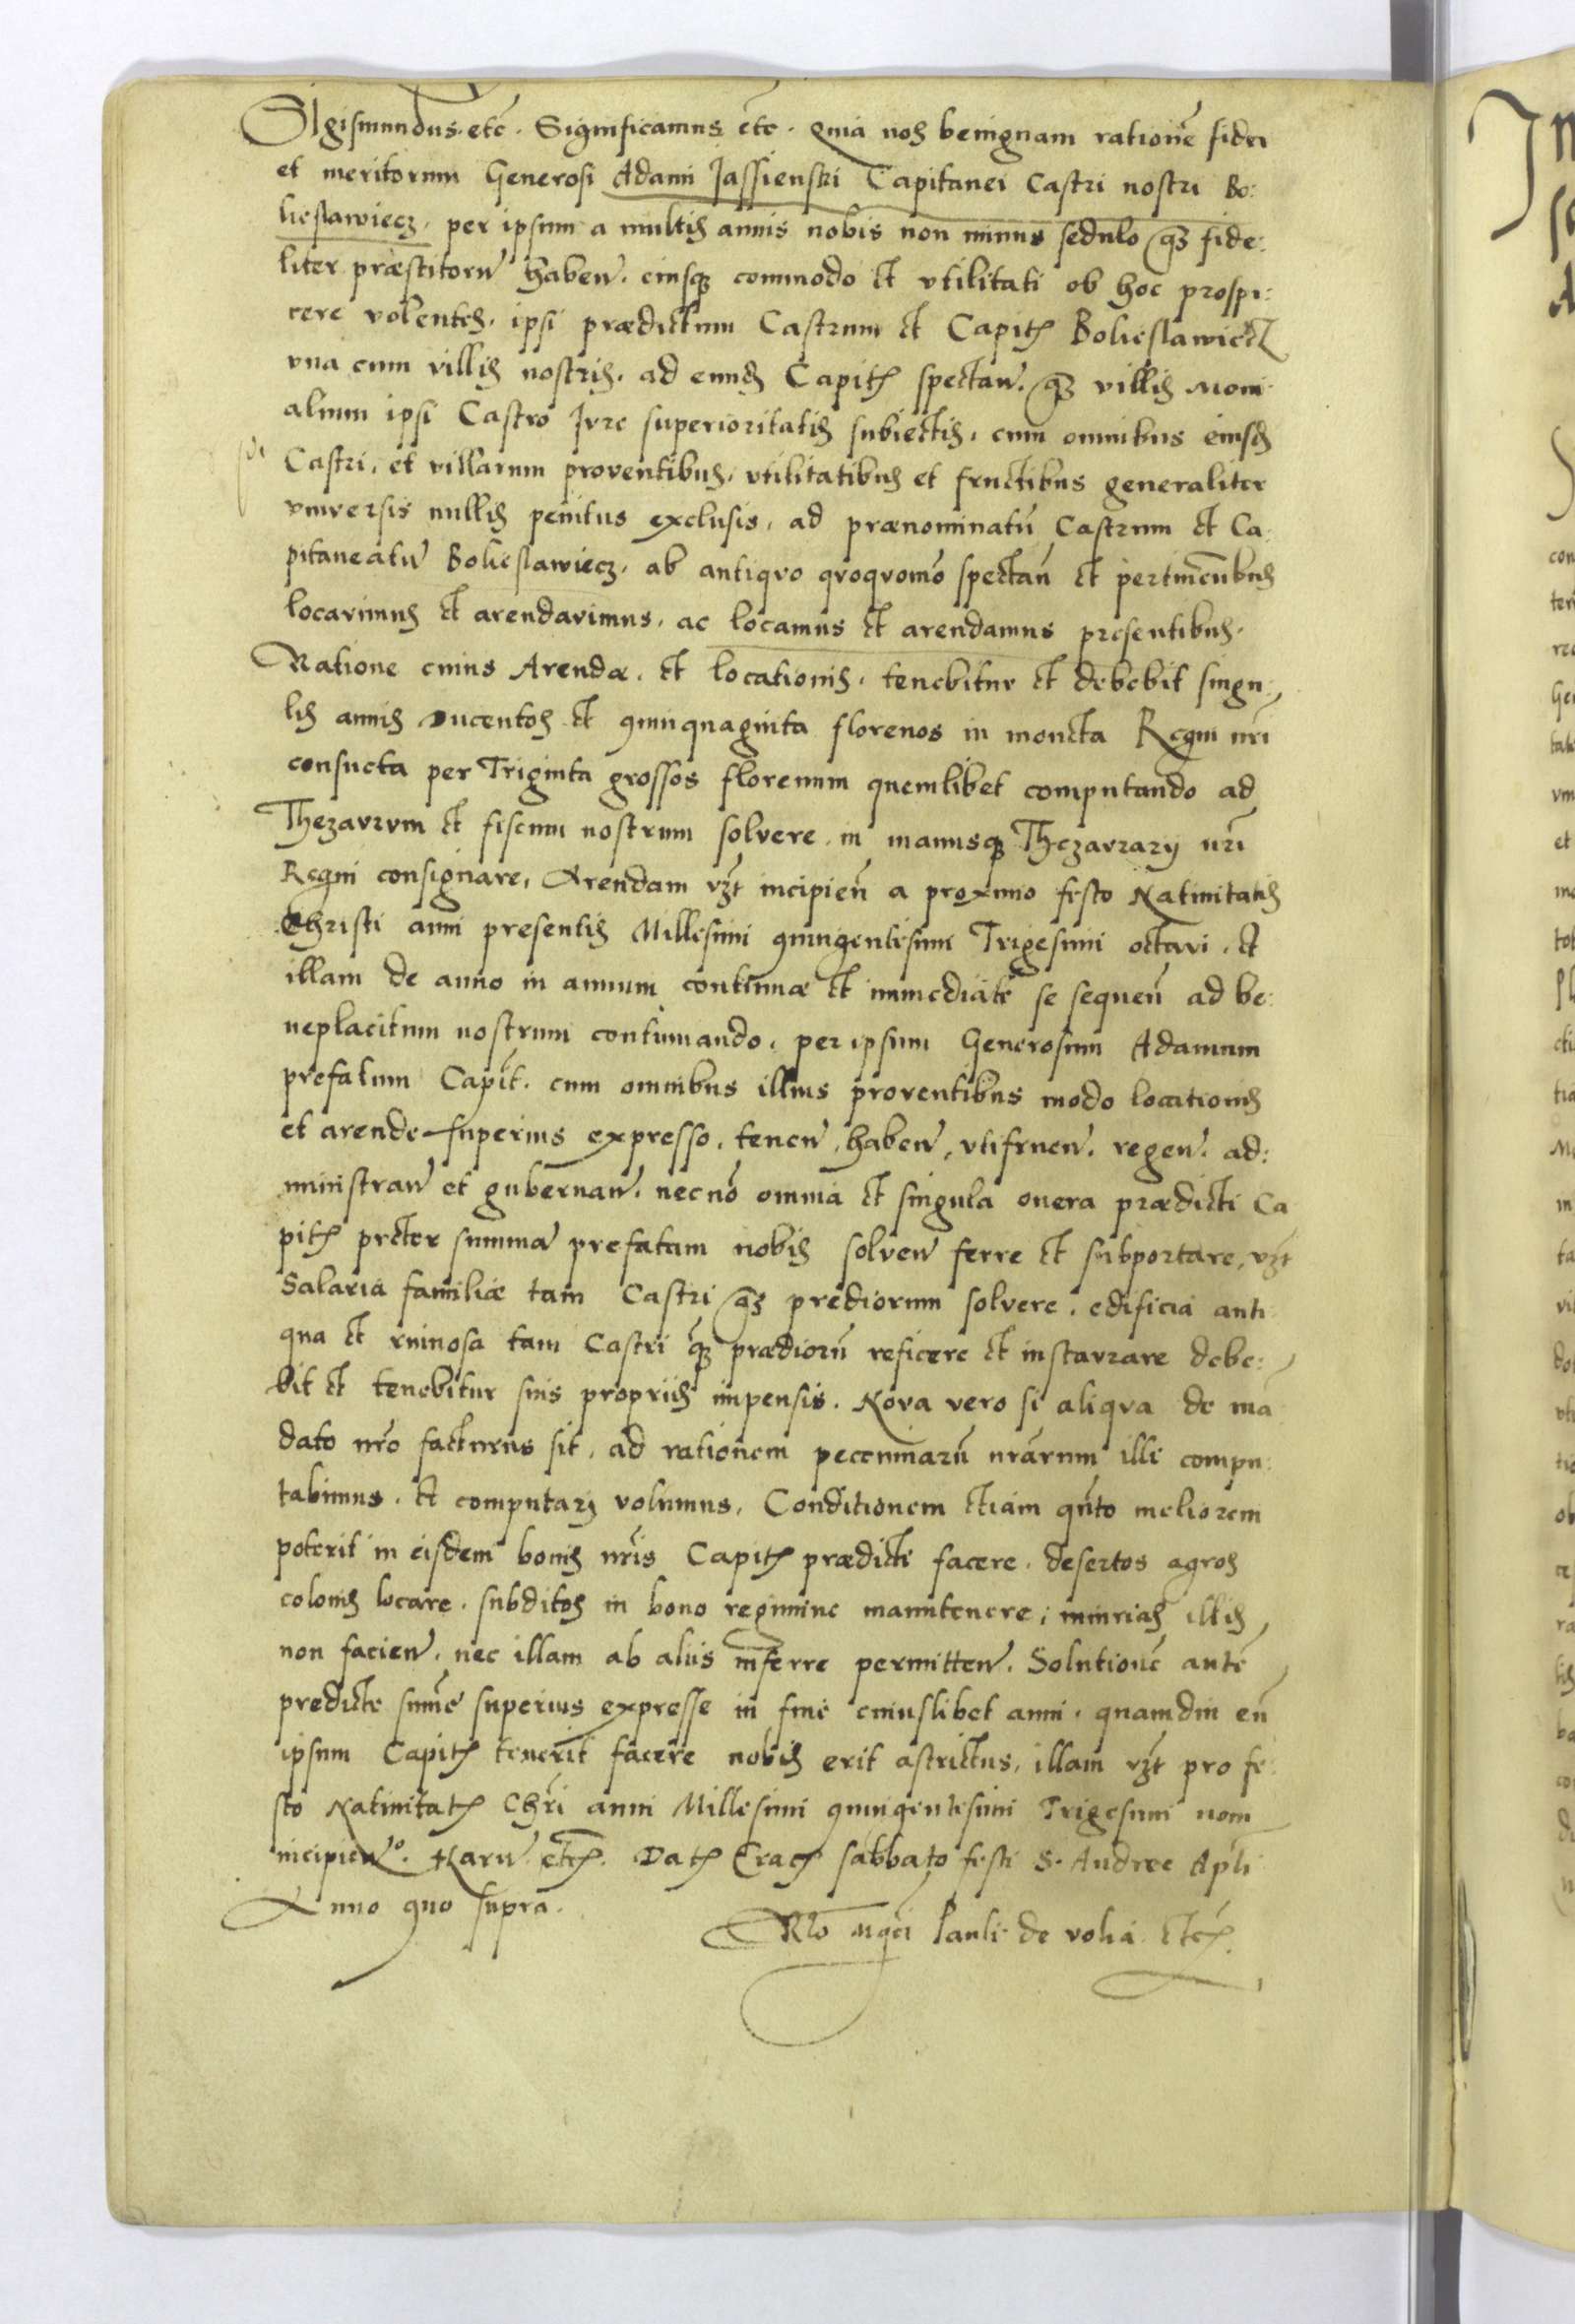 Sigismundus etc. Significamus etc. quia nos benignam rationē fidei
et meritorum Generosi Adami Jassienski Capitanei Castri nostri Bo:
lieslawiecz, per ipsum a multis annis nobis non minus sedulo q̃ȝ fide:
liter præstitorū habeñ. eiusqȝ commodo et vtilitati ob hoc prospi:
cere volentes, ipsi prædictum Castrum et Capitꝭ Bolieslawiecz
vna cum villis nostris, ad eundꝭ Capitꝭ spectañ. q̃ȝ villis Moni
alium ipsi Castro Jvre superioritatis subiectis, cum omnibus eiusdꝭ
Castri, et villarum proventibus, vtilitatibus et fructibus generaliter
vniversis nullis penitus exclusis, ad prænominatū Castrum et Ca
pitaneatū Bolieslawiecz, ab antiqvo qvoqvomō spectañ et pertineñtibus
locavimus et arendavimus, ac locamus et arendamus presentibus.
Ratione cuius Arendæ, et locationis, tenebitur et debebit singu:
lis annis Ducentos et quinquaginta florenos in moneta Regni nr̃i
consueta per Triginta grossos florenum quemlibet computando ad
Thezavrvm et fiscum nostrum solvere, in manusqȝ Thezavrarij nr̃i
Regni consignare, Arendam vȝt incipieñ a proximo festo Natiuitatis
Christi anni presentis Millesimi quingentesimi Trigesimi octavi, et
illam de anno in annum continuæ et immediatē se sequeñ ad be:
neplacitum nostrum continuando, per ipsum Generosum Adamum
prefatum Capit̃. cum omnibus illius proventibus modo locationis
et arende superius expresso, teneñ, habeñ, vtifrueñ, regeñ, ad:
ministrañ et gubernañ, necnō omnia et singula onera prædicti Ca
pitꝭ preter summā prefatam nobis solveñ ferre et subportare, vȝt
Salaria familiæ tam Castri q̃ȝ prediorum solvere, edificia anti
qua et ruinosa tam Castri q̃ȝ prædiorū reficere et instavrare debe:
bit et tenebitur suis propriis impensis. Nova vero si aliqva de mā
dato nr̃o facturus sit, ad rationem pecuniarū nr̃arum illi compu:
tabimus. Et computarj volumus, Conditionem etiam qūto meliorem
poterit in eisdem bonis nr̃is Capitꝭ prædicti facere, desertos agros
colonis locare, subditos in bono regimine manutenere, iniurias illis
non facieñ, nec illam ab aliis inferre permitteñ. Solutionē autē
predicte sum̄e superius expresse in fine cuiuslibet anni, quamdiu eū
ipsum Capitꝭ tenerit facere nobis erit astrictus, illam vȝt pro fe:
sto Natiuitatꝭ Chr̃i anni Millesimi quingentesimi Trigesimi noni
incipieñdo. Harū etcꝭ. Datꝭ Cracꝭ sabbato festi S. Andree Apl̃i
Anno quo supra.
Rlō Mgc̃i Pauli de volia etcꝭ.